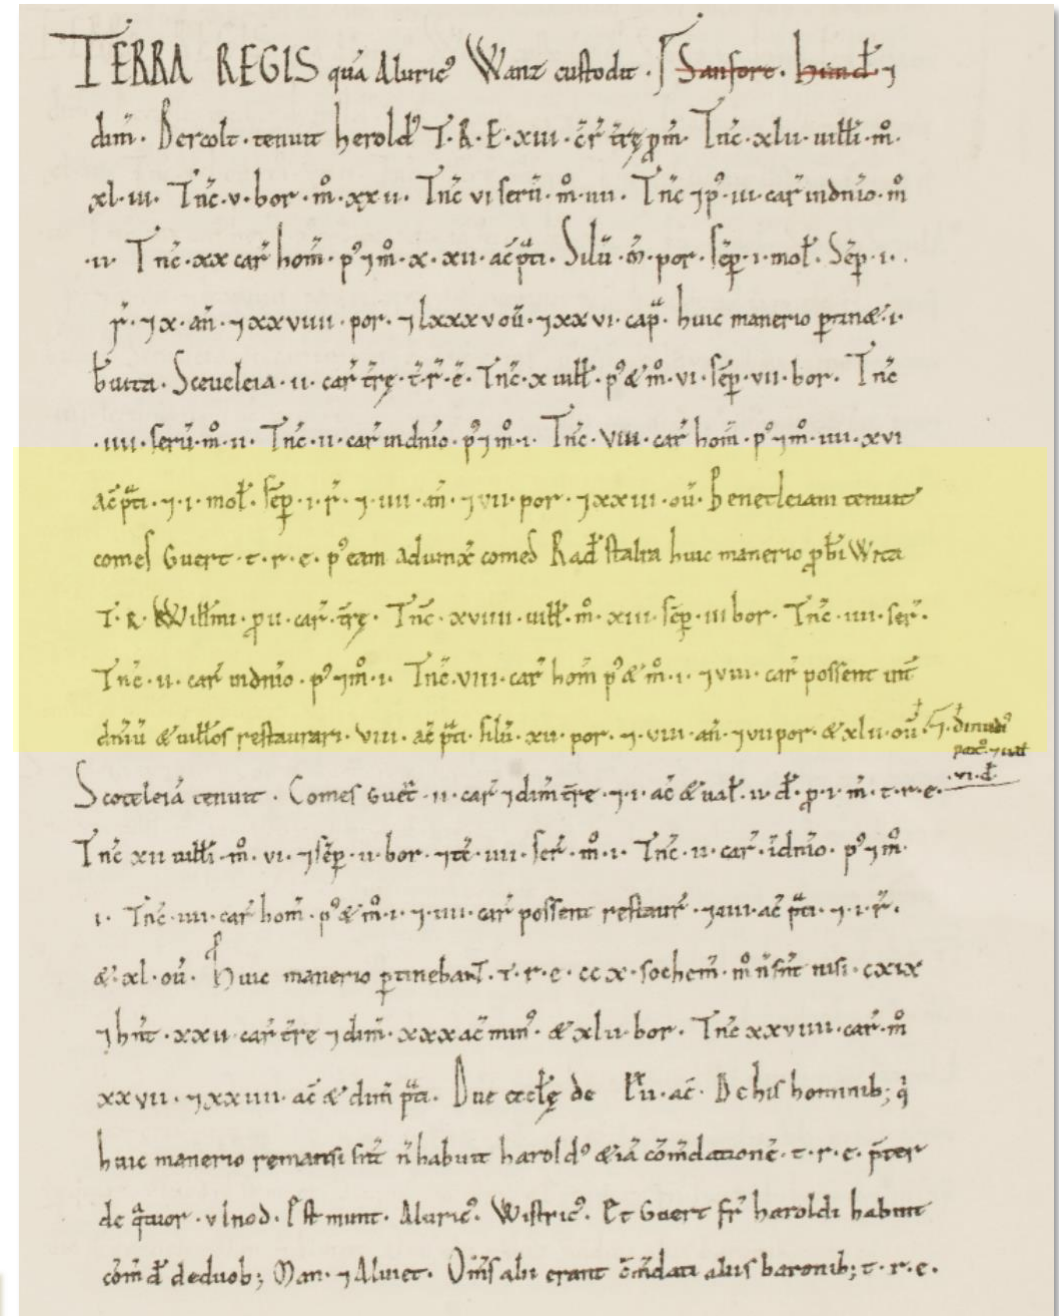 TERRA REGIS quā Aluric᾽ Wanz custodit · Sanfort · Hund̄ ⁊
dim̄ · Bercolt · tenuit herold᾽ T · R · E · xiii · c̄r̄ t̄rę p̄ m̄ · Tn̄c · xlii · uilłi · m̊ ·
xl · iii · Tn̄c · v · bor · m̊ · xx ii · Tn̄c vi seru̅ · m̊ · iiii · Tn̄c ⁊ p᾽ · iii · car̄ in dn̄io · m̊
· ii · Tn̄c · xx car̄ hom̄ · p᾽ ⁊ m̊ · x · xii · ac̄ p̄ti · Silū · · por · sēp · i · mol̄ · Sēp · i ·
r̄ · ⁊ x · an̄ · ⁊ xxviiii · por · ⁊ lxxx v ou̅ · ⁊ xx vi · cap̄ · huic manerio ptinet · i ·
b̄uita · Sceueleia · ii · car̄ t̄rę · t · r̄ · ē · Tn̄c · x uilł · p᾽ & m̊ · vi · sēp · vii · bor · Tn̄c
· iiii · seru̅ · m̊ · ii · Tn̄c · ii · car̄ in dn̄io · p᾽ ⁊ m̊ · i · Tn̄c · viii · car̄ hom̄ · p᾽ ⁊ m̊ · iiii · xvi
ac̄ p̄ti · ⁊ · i · mol̄ · sēp · i · r̄ · ⁊ · iiii · an̄ · ⁊ vii · por · ⁊ xxiii · ou̅ · Benetleiam tenuit
comes Guert · t · r · e · p᾽ eam adiunx̄ comes Rad̄ stalra huic manerio p b̄uWita
T · R · Willmi · p ii · car · t̄rę · Tn̄c · xviiii · uilł · m̊ · xiii · sēp · iii bor · Tn̄c · iiii · ser̄ ·
Tn̄c · ii · car̄ in dn̄io · p᾽ ⁊ m̊ · i · Tn̄c · viii · car̄ hom̄ p᾽ & m̊ · i · ⁊ viii · car̄ possent int̄
dn̄iū & uilłos restaurari · viii · ac̄ p̄ti · silū · xii · por · ⁊ · viii · an̄ · ⁊ vii por · & xlii · ou̅ · ⁊ · dimidi᾽
parc᾽ · ⁊ ual̄
· vi · d̄ ·
Scoteleiā tenuit · Comes Guer̄t · ii · car̄ ⁊ dim̄ t̄rę · ⁊ · i · ac̄ & ual̄ · ii · d̄ · p · i · m̄ · t · r · e ·
Tn̄c xii uilłi · m̊ · vi · ⁊ sēp · ii · bor · ⁊ tc̄ · iiii · ser̄ · m̊ · i · Tn̄c · ii · car̄ · ī dn̄io · p᾽ ⁊ m̊ ·
i · Tn̄c · iiii · car̄ hom̄ · p᾽ & m̊ · i · ⁊ · iiii · car̄ possent restaur̄ · ⁊ iiii · ac̄ p̄ti · ⁊ · i · r̄ ·
& · xl · ou̅ · Huic manerio ptinebant · t · r · e · cc x · sochem̄ · m̊ n̄ sn̄t nisi · cxix
⁊ hn̄t · xxii · car̄ t̄re ⁊ dim̄ · xxx ac̄ min᾽ · & xlii · bor · Tn̄c xxviiii · car̄ · m̊
xxvii · ⁊ xxiiii · ac̄ & dim̄ p̄ti · Due ęcclę de lvii · ac̄ · De his hominib; q̇
huic manerio remansi sn̄t n̄ habuit harold᾽ etiā cōm̄dationē · t · r · e · p̄ter
de q̈tuor · vlnod · Estmunt · Aluric᾽ · Wistric᾽ · Et Guert fr̄ haroldi habuit
cōm̄ d̄ de duob; Man · ⁊ Aluiet · Om̄s alii erant cōm̄dati aliis baronib; t · r · e ·